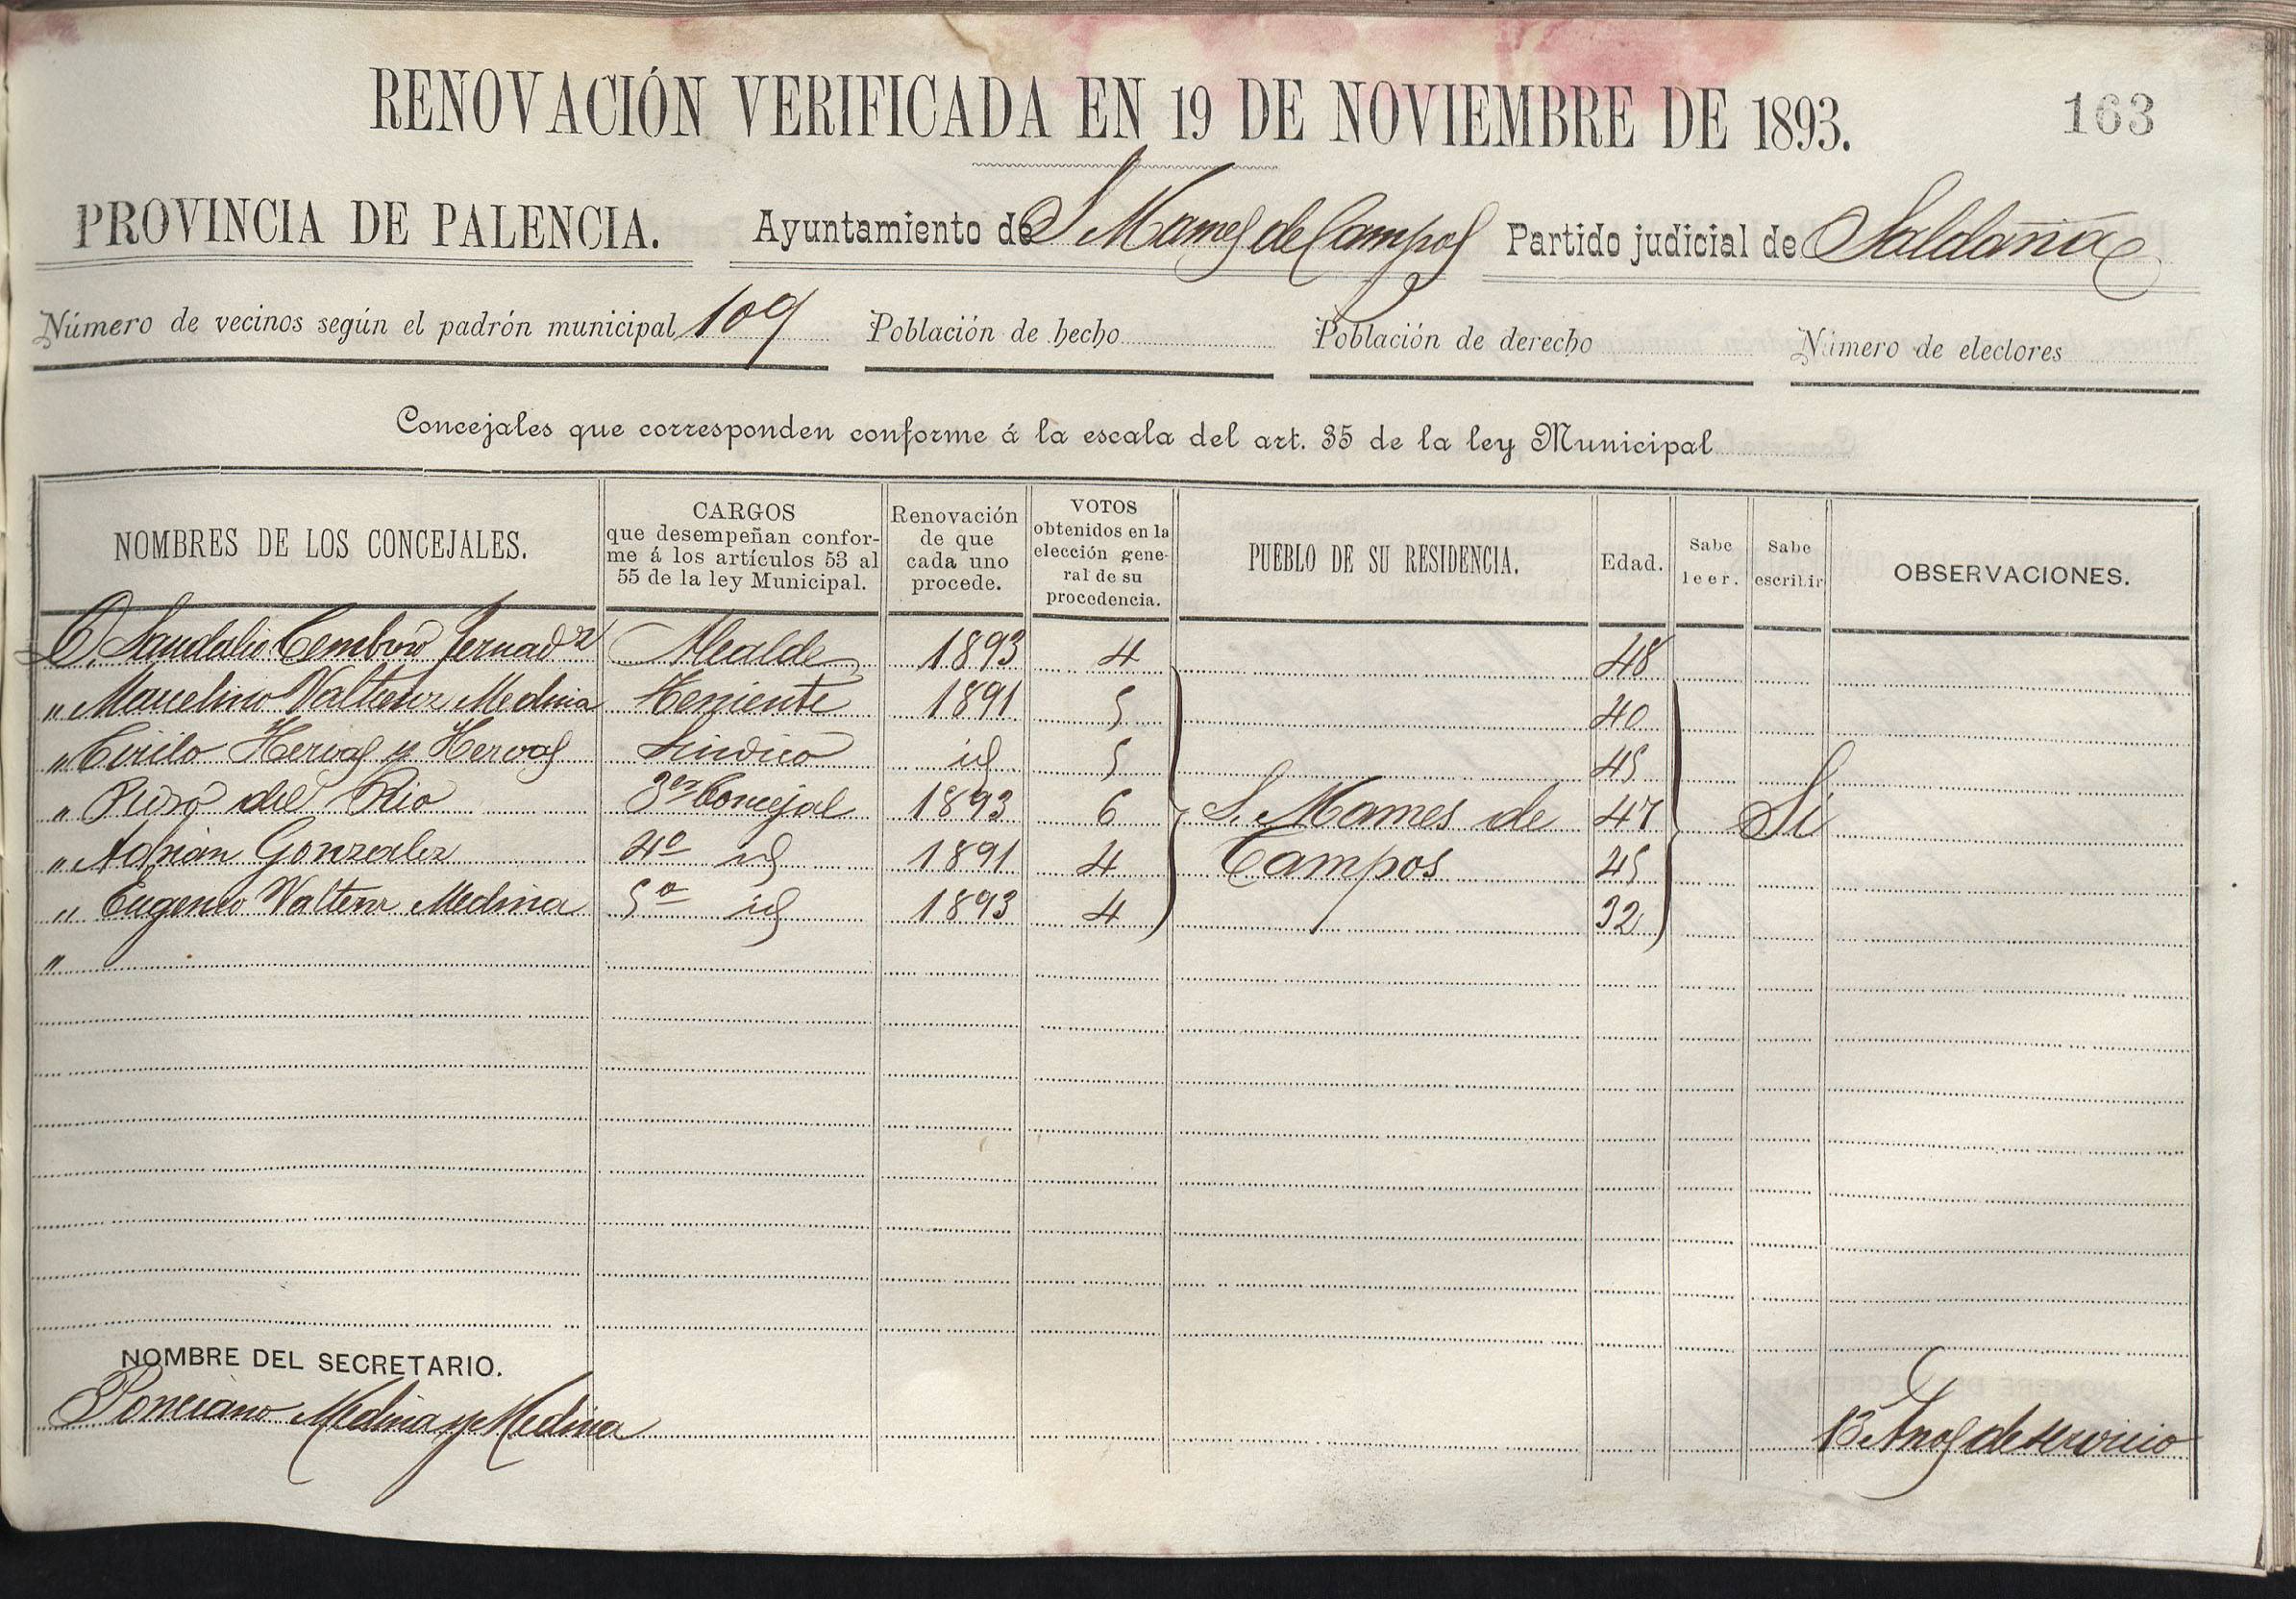 RENOVACIÓN VERIFICADA EN 19 DE NOVIEMBRE DE 1893. 163
PROVINCIA DE PALENCIA. Ayuntamiento de S Mames de Campos Partido judicial de Saldaña
Número de vecinos según el padrón municipal 109 Población de hecho Población de derecho Número de electores
Concejales que corresponden conforme á la escala del art. 35 de la ley Municipal
NOMBRES DE LOS CONCEJALES.
CARGOS
que desempeñan confor-
me á los artículos 53 al
55 de la ley Municipal.
Renovación
de que
cada uno
procede.
VOTOS
obtenidos en la
elección gene-
ral de su
procedencia.
PUEBLO DE SU RESIDENCIA.
Edad.
Sabe
leer.
Sabe
escribir
OBSERVACIONES.
D. Sandalio Alcalde 1893 4 48
" Marcelino Medina Teniente 1891 5 40
" Cirilo Hervas y Hervas Sindico id 5 45
" Pedro del Rio 3er Concejal 1893 6 S. Mames de 47 Si
" Adrian Gonzalez 4º id 1891 4 Campos 45
" Eugenio Medina 5º id 1893 4 32
"
NOMBRE DEL SECRETARIO.
Ponciano Medina y Medina 13 Años de servicio